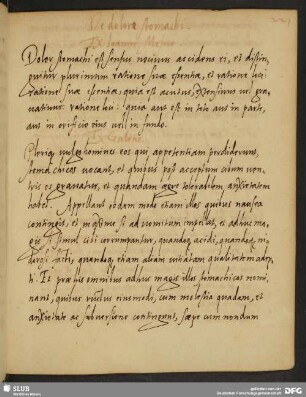 De dolore stomachi.
Ex Joannis
Dolor stomachi est sensus nocivus accidens ei, et distin,
guitur plurimum ratione suae essentiae, et ratione loci
ratione suae essentiae, quia est acutus, extensivus vel gra,
vativus: ratione loci: quia aut est in toto aut in parte,
aut in orificio eius vel in fundo.
Ex Galeno
Plerique homines eos qui appetentiam perdiderunt,
stomachicos vocant, et quibus post acceptum cibum ven,
ter is gravatur, et quandam aegre tolerabilem anxietatem
habet. Appellant eodem modo etiam illos quibus nausea
contingit, et maxime si ad vomitum impellat, et adhuc ma,
gis si simul cibi corrumpantur, quandoque acidi, quandoque ni,
dorosi facti, quandoque etiam aliam qualitatem adep,
ti. Et prae iis omnibus adhuc magis illos stomachicos nomi,
nant, quibus ructus eiusmodi, cum molestia quadam, et
anxietate ac subversione contingunt, saepe cum nondum
SLUB
DFG